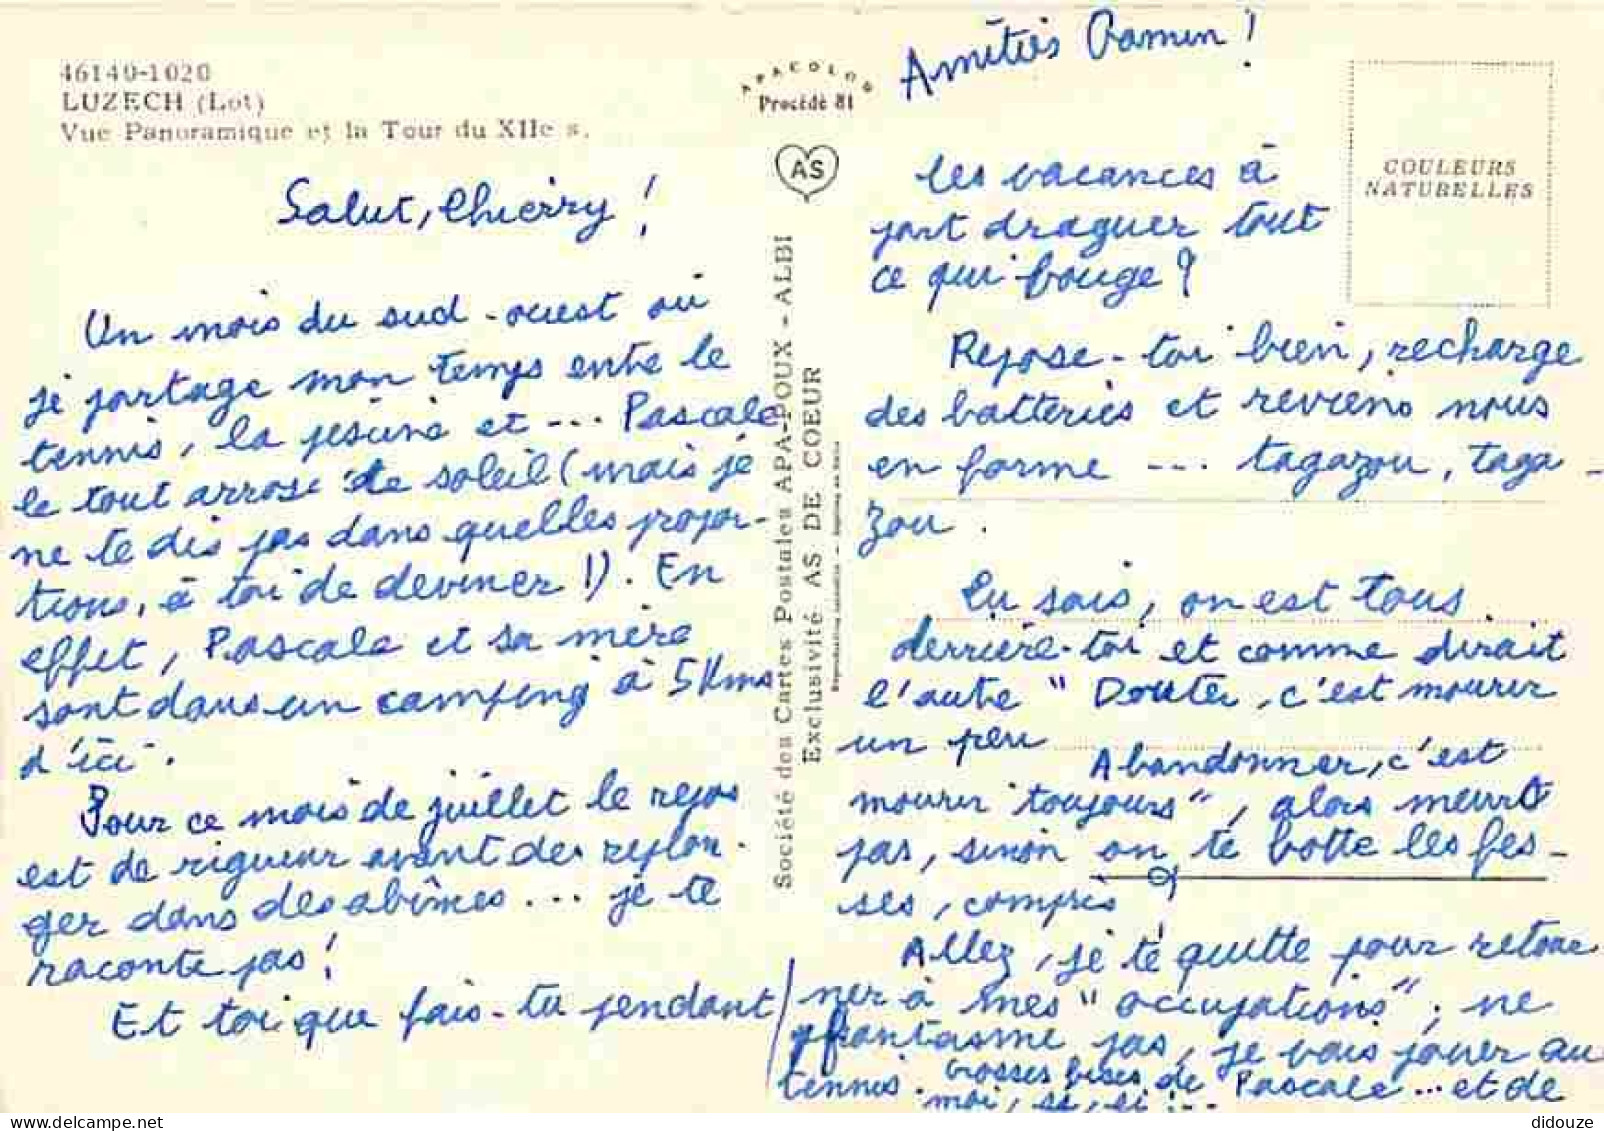 46140-1020
LUZECH (Lot)
Vue Panoramique et la Tour du XIIe s.
Salut, Thierry !
Un mois du sud-ouest où
je partage mon temps entre le
tennis, la piscine et ... Pascale
le tout arrosé de soleil (mais je
ne te dis pas dans quelles propor-
tions, à toi de deviner !). En
effet, Pascale et sa mère
sont dans un camping à 5 Kms
d'ici.
Pour ce mois de juillet le repos
est de rigueur avant de replon-
ger dans des abîmes ... je te
raconte pas !
Et toi que fais-tu pendant
APACOLOR
Procédé 81
AS
Société des Cartes Postales APA-POUX - ALBI
Exclusivité AS DE COEUR
Amitiés !
COULEURS
NATURELLES
les vacances à
part draguer tout
ce qui bouge ?
Repose-toi bien, recharge
des batteries et reviens nous
en forme ... tagazou, taga-
zou.
Tu sais, on est tous
derrière-toi et comme dirait
l'autre " Douter, c'est mourir
un peu
Abandonner, c'est
mourir toujours", alors meurs
pas, sinon on te botte les fes-
ses, compris
Allez, je te quitte pour retour
ner à mes "occupations"; ne
phantasme pas, je vais jouer au
tennis. Grosses bises de Pascale ... et de
moi, si, si !...
didouze